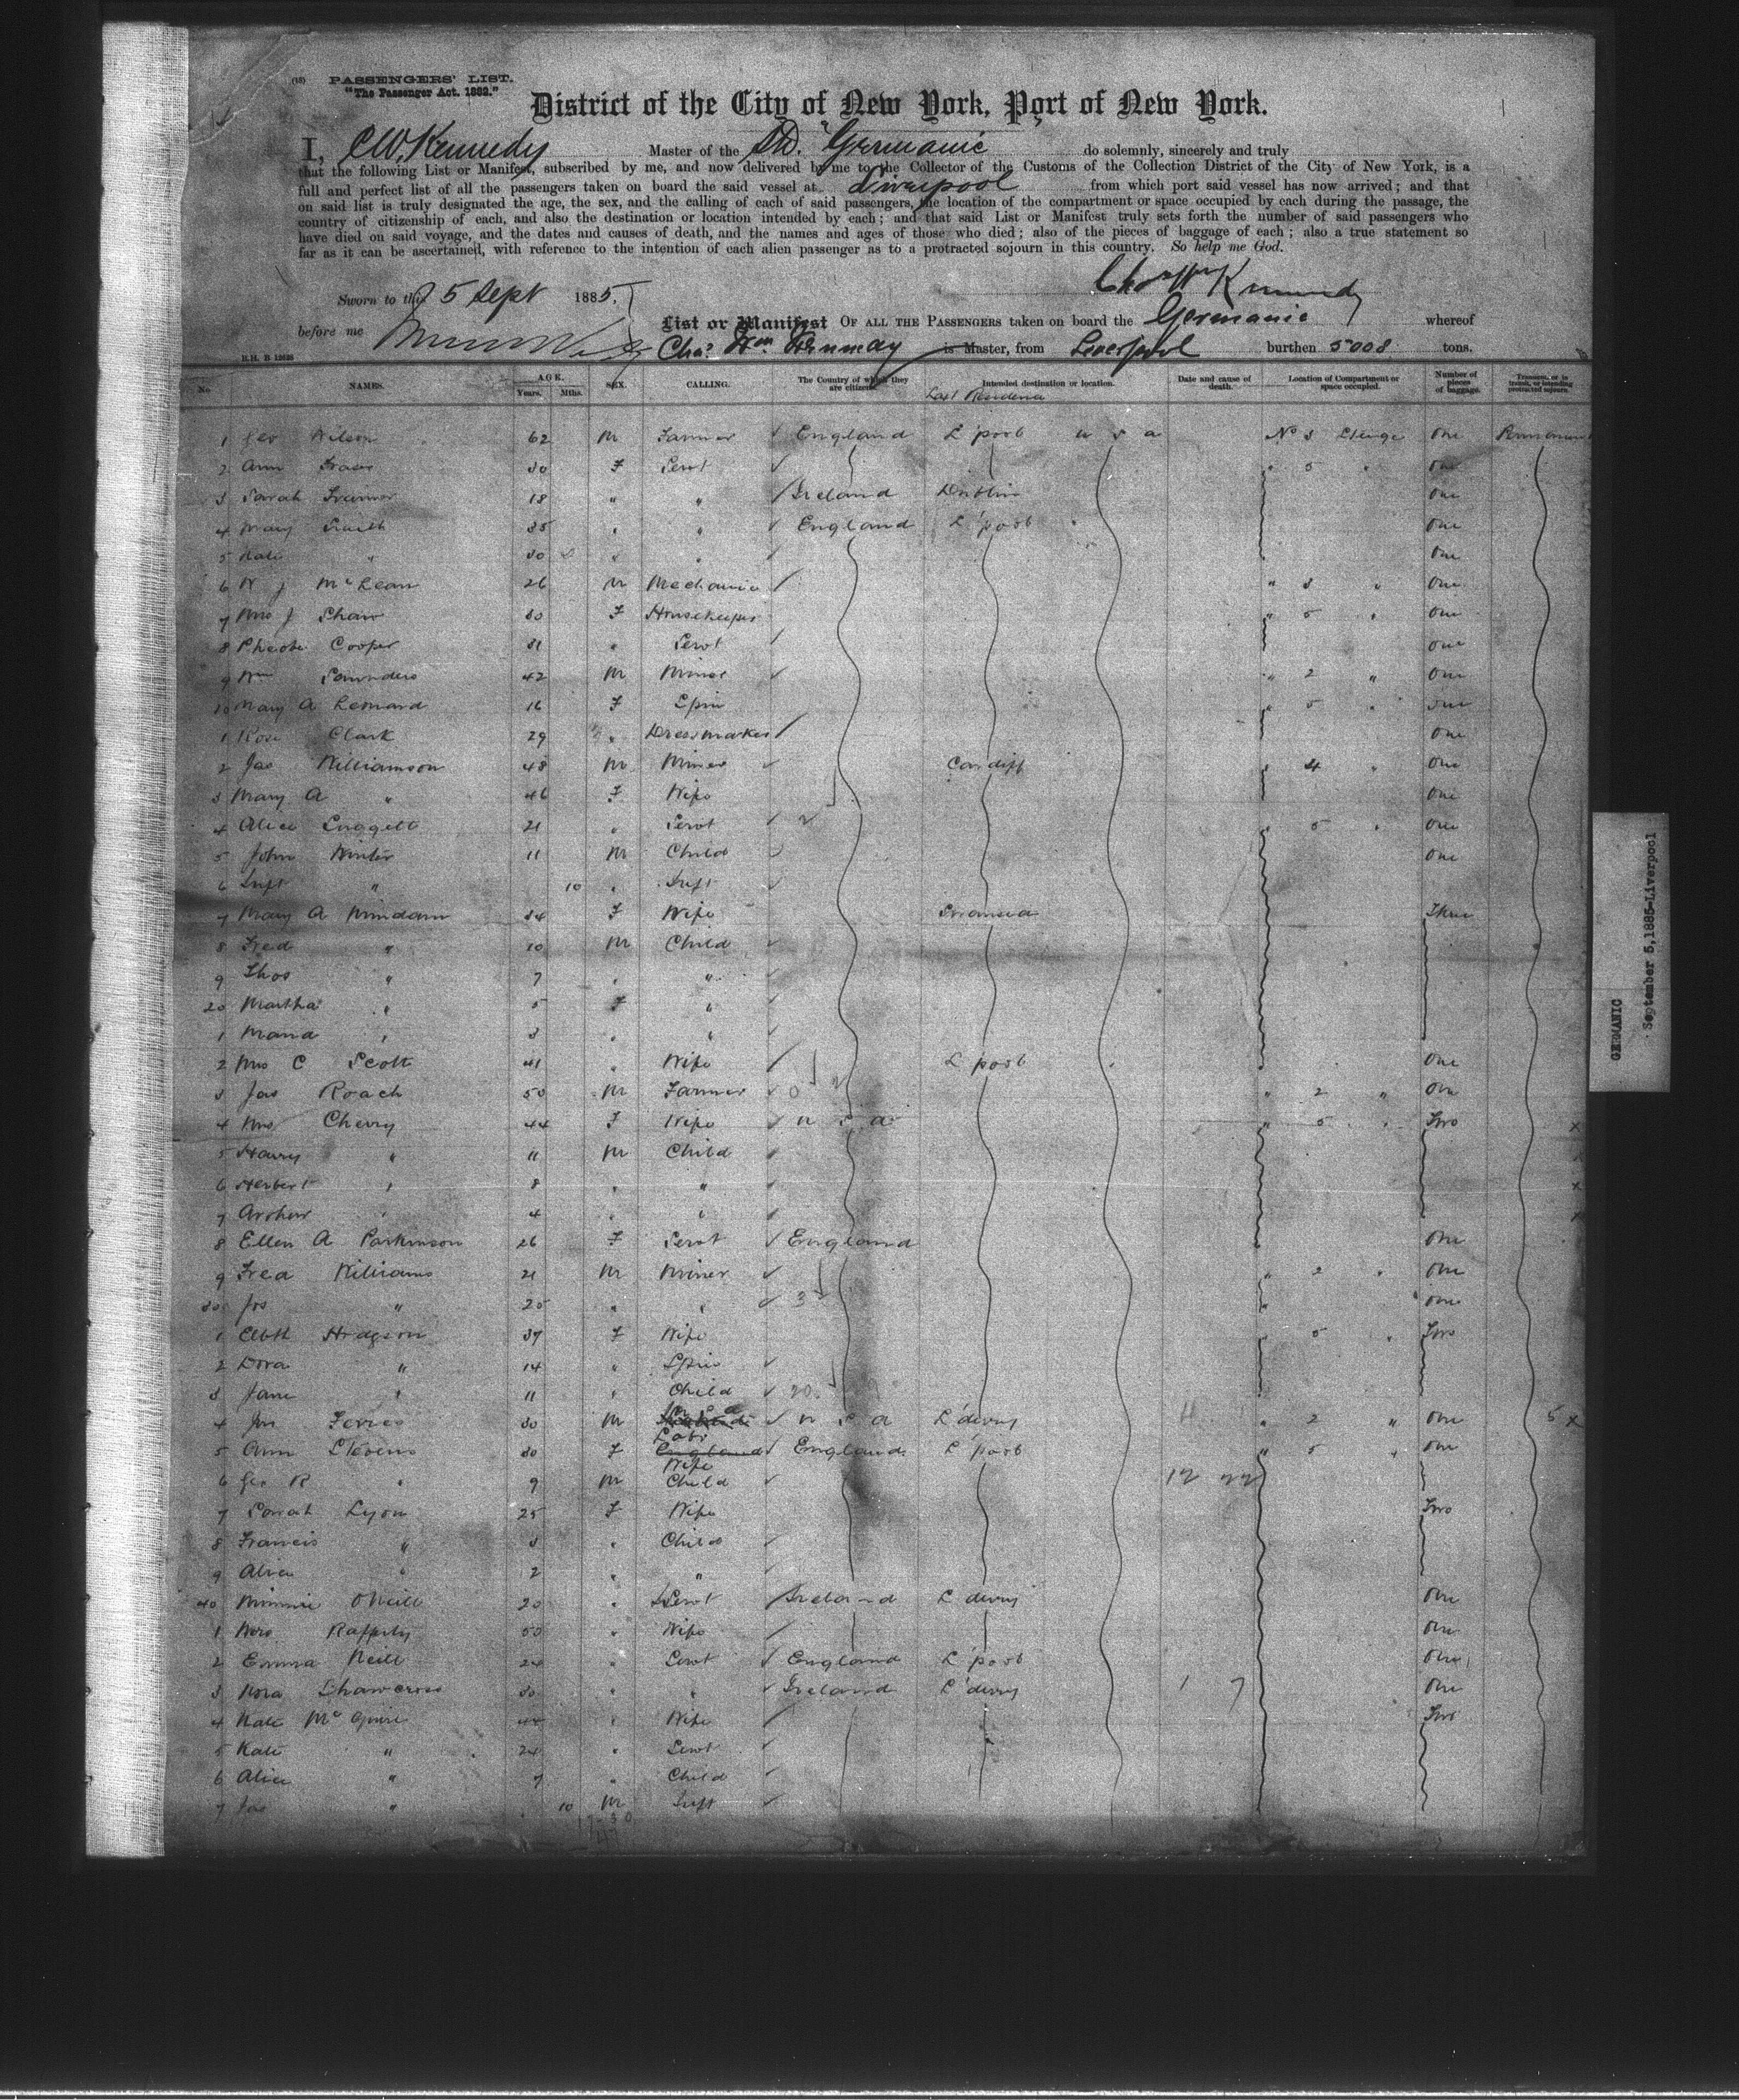 (13) PASSENGERS' LIST.
"The Passenger Act. 1882."
District of the City of New York, Port of New York.
I, C W. Kennedy Master of the Germanic do solemnly, sincerely and truly
that the following List or Manifest, subscribed by me, and now delivered by me to the Collector of the Customs of the Collection District of the City of New York, is a
full and perfect list of all the passengers taken on board the said vessel at Liverpool from which port said vessel has now arrived; and that
on said list is truly designated the age, the sex, and the calling of each of said passengers, the location of the compartment or space occupied by each during the passage, the
country of citizenship of each, and also the destination or location intended by each; and that said List or Manifest truly sets forth the number of said passengers who
have died on said voyage, and the dates and causes of death, and the names and ages of those who died; also of the pieces of baggage of each; also a true statement so
far as it can be ascertained, with reference to the intention of each alien passenger as to a protracted sojourn in this country. So help me God.
Chas Wm Kennedy
Sworn to this 5 Sept 1885.
before me
List or Manifest OF ALL THE PASSENGERS taken on board the Germanic whereof
Chas. Wm Kennedy is Master, from Liverpool burthen 5008 tons.
No NAMES. AGE. Years. Mths. SEX. CALLING. The Country of which they are citizens. Intended destination or location. Date and cause of death. Location of Compartment or space occupied. Number of pieces of baggage. Transient, or in transit, or intending protracted sojourn.
Last Residence
1 Geo Wilson 62 M Farmer England L'pool U S A No 3 Steerage One Permanent
2 Ann 30 F Servt " 5 " One
3 Sarah 18 " " Ireland Dublin One
4 Mary Smith 35 " " England L'pool One
5 Kate " 30 " " One
6 W J McLean 26 M Mechanic " 3 " One
7 Mrs J Shaw 30 F Housekeeper " 5 " One
8 Phoebe Cooper 31 " Servt One
9 Wm Saunders 42 M Miner " 2 " One
10 Mary A Leonard 16 F Spin " 5 " One
1 Rose Clark 29 " Dressmaker One
2 Jas Williamson 48 M Miner Cardiff " 4 " One
3 Mary A " 46 F Wife One
4 Alice 21 " Servt " 5 " One
5 John Winter 11 M Child One
6 Inft " 10 " Inft
7 Mary A Windam 34 F Wife Swansea Three
8 Fred " 10 M Child
9 Thos " 7 " "
20 Martha " 5 F "
1 Maud " 3 " "
2 Mrs C Scott 41 " Wife L'pool One
3 Jas Roach 50 M Farmer " 2 " One
4 Mrs Cherry 44 F Wife U S A " 5 " Two x
5 Harry " 11 M Child x
6 Herbert " 8 " " x
7 Arthur " 4 " " x
8 Ellen A Parkinson 26 F Servt England One
9 Fred Williams 21 M Miner " 2 " One
30 Jos " 25 " " One
1 Elbth Hodgson 37 F Wife " 5 " Two
2 Dora " 14 " Spin
3 Jane " 11 " Child
4 Jas 30 M Labr U S A L'derry " 2 " One x
5 Ann Stevens 30 F Wife England L'pool " 5 " One
6 Geo R " 9 M Child
7 Sarah Lyon 25 F Wife Two
8 Francis " 3 " Child
9 Alice " 2 " "
40 Minnie O'Neill 20 " Servt Ireland L'derry One
1 Mrs Rafferty 50 " Wife One
2 Emma Neill 24 " Servt England L'pool One
3 Nora Shawcross 30 " " Ireland L'derry One
4 Kate McGuire 44 " Wife Two
5 Kate " 24 " Servt
6 Alice " 7 " Child
7 Jas " 10 M Inft
GERMANIC
September 5, 1885-Liverpool